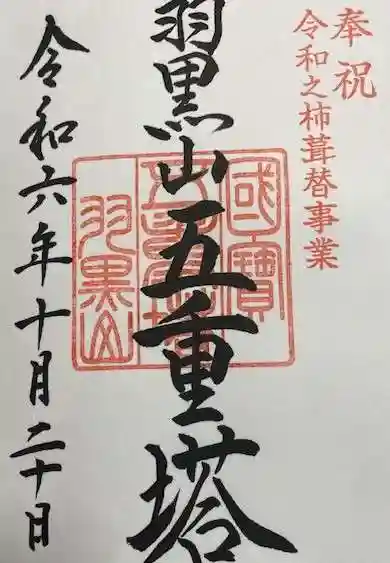 奉祝
令和之柿葺替事業
羽黒山五重塔
國寶
五重塔
羽黒山
令和六年十月二十日